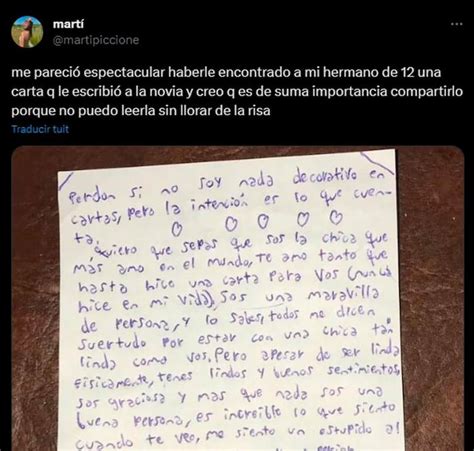 martí
@martipiccione
me pareció espectacular haberle encontrado a mi hermano de 12 una
carta q le escribió a la novia y creo q es de suma importancia compartirlo
porque no puedo leerla sin llorar de la risa
Traducir tuit
Perdon si no soy nada decorativo en
cartas, pero la intención es lo que cuen-
ta.
Quiero que sepas que sos la chica que
más amo en el mundo, te amo tanto que
hasta hice una carta para vos (nunca
hice en mi vida), sos una maravilla
de persona, y lo sabes, todos me dicen
suertudo por estar con una chica tan
linda como vos. Pero apesar de ser linda
fisicamente, tenes lindos y buenos sentimientos,
sos graciosa y mas que nada sos una
buena persona, es increible lo que siento
cuando te veo, me siento un estupido al